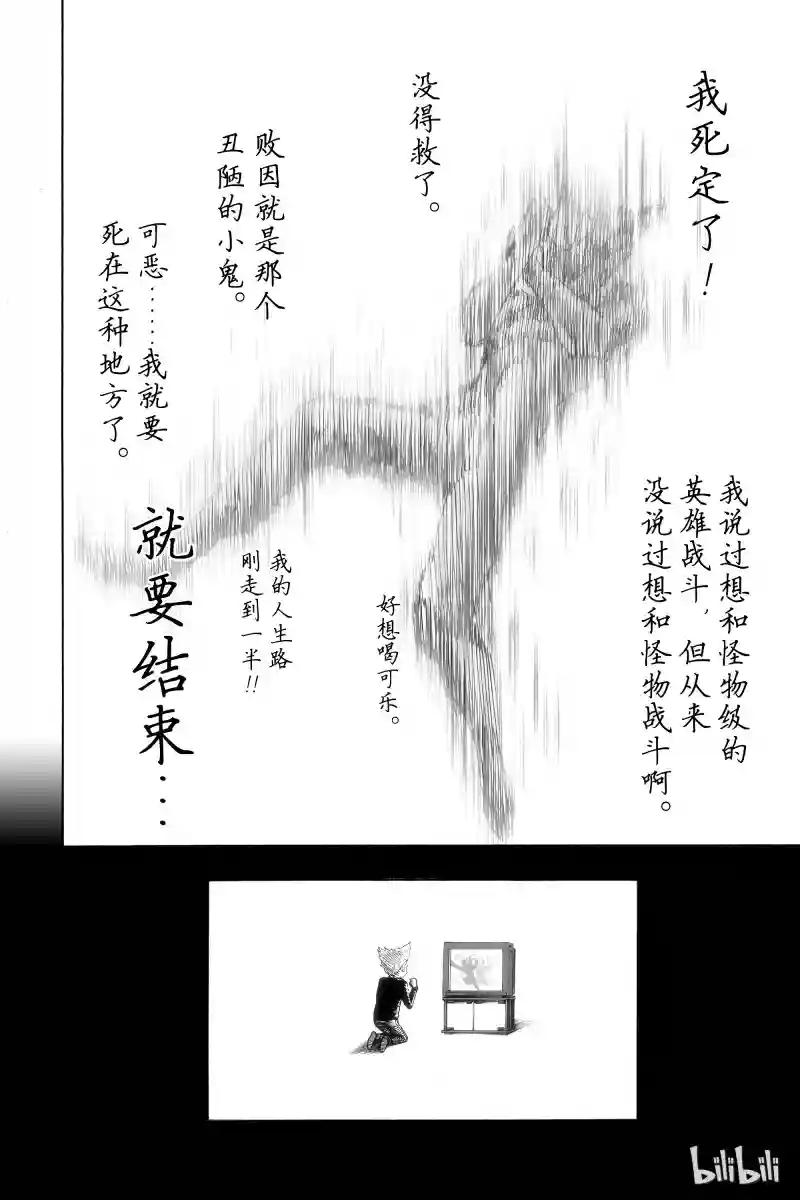 我死定了！
没得救了。
败因就是那个
丑陋的小鬼。
可恶……我就要
死在这种地方了。
我说过想和怪物级的
英雄战斗，但从来
没说过想和怪物战斗啊。
好想喝可乐。
我的人生路
刚走到一半!!
就要结束…
bilibili